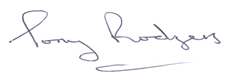 Tony Rodgers